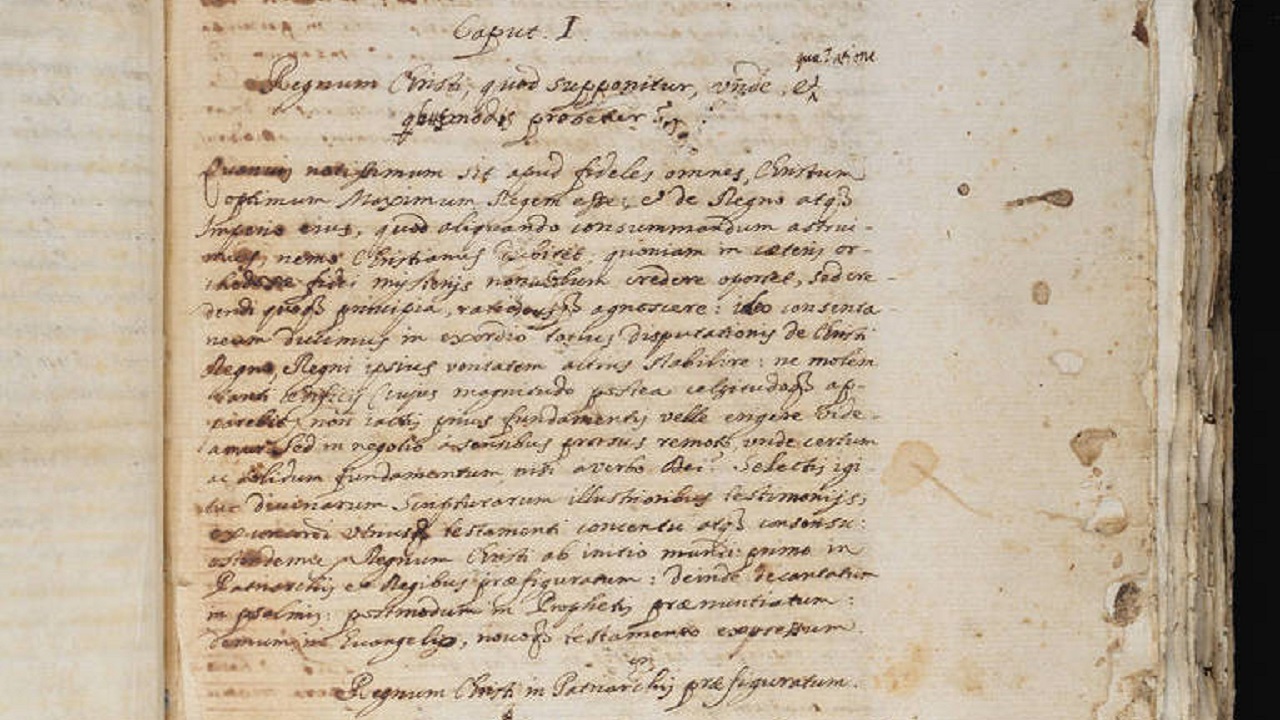 Caput. I.
qua ratione
Regnum Christi, quod supponitur, vnde, et
modis probetur
Quamuis notissimum sit apud fideles omnes, Christum
optimum Maximum Regem esse; et de Regno atqȝ
Imperio eius, quod aliquando consummandum astrui-
mus, nemo Christianus dubitet, quoniam in cæteris or-
thodoxæ fidei mysterijs non solum credere oportet, sed cre-
dendi quoqȝ principia, rationesqȝ agnoscere: ideo consenta-
neum ducimus in exordio totius disputationis de Christi
Regno, Regni ipsius veritatem altius stabilire: ne molem
tanti ędificij (cujus magnitudo postea celsitudoqȝ ap-
parebit) non iactis prius fundamentis velle erigere vide-
amur. Sed in negotio a sensibus prorsus remoto, vnde certum
ac solidum fundamentum, nisi a verbo Dei? Selectis igi-
tur diuinarum Scripturarum illustrioribus testimonijs,
ex concordi vtriusqȝ testamenti concentu atqȝ consensu:
ostendemus Regnum Christi ab initio mundi primo in
Patriarchis et Regibus præfiguratum: deinde decantatum
in psalmis: postmodum in Prophetis prænuntiatum:
demum in Euangelio, nouoqȝ testamento expressum.
Regnum Christi in Patriarchis præfiguratum.